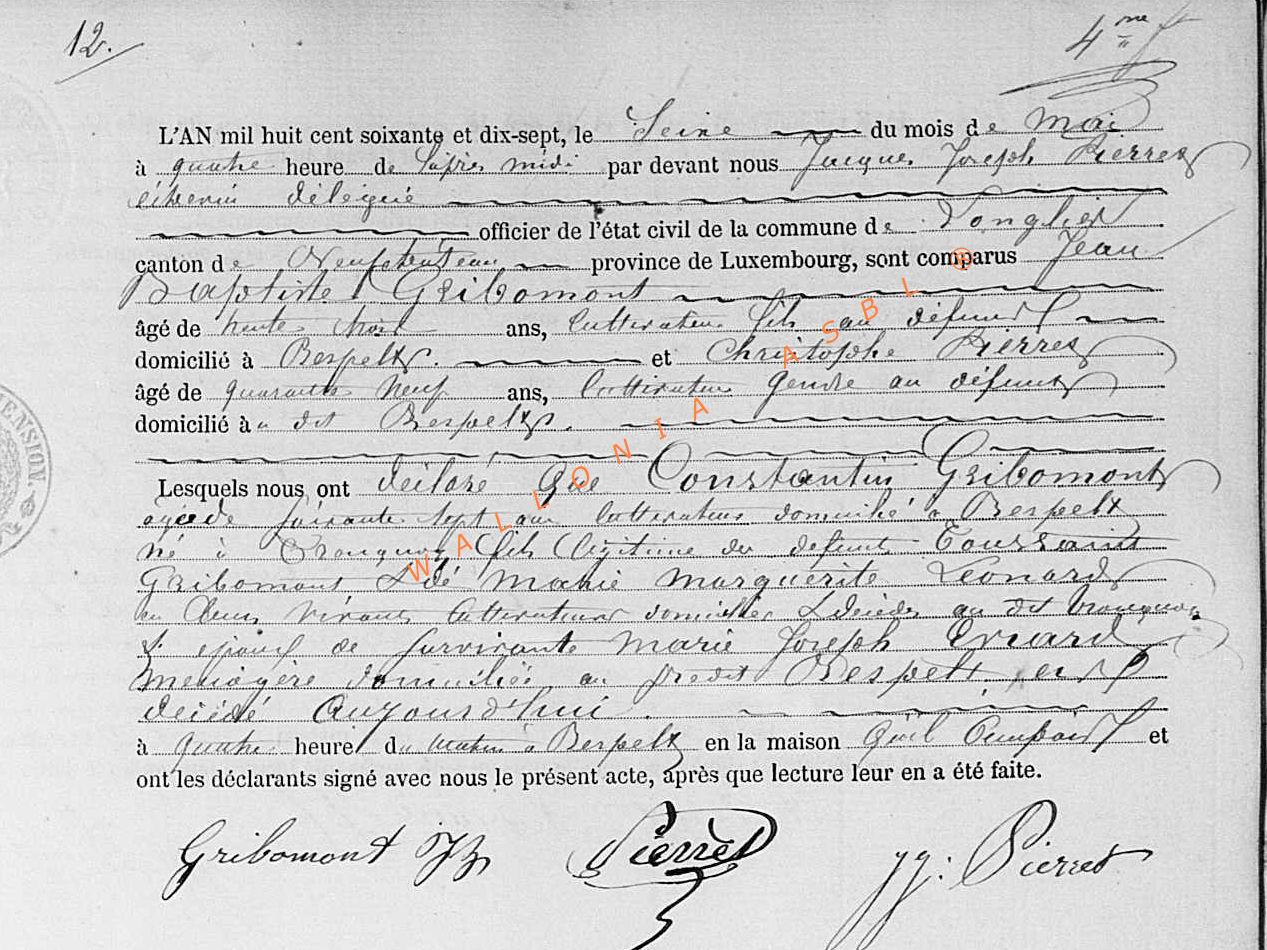 12.
4me
L'AN mil huit cent soixante et dix-sept, le Seize du mois de Mai
à quatre heure de l'après midi par devant nous Jacques Joseph Pierret
échevin délégué
officier de l'état civil de la commune de Longlier
canton de Neufchâteau province de Luxembourg, sont comparus Jean
Baptiste Gribomont
âgé de trente trois ans, Cultivateur fils au défunt
domicilié à Respelt. et Christophe Pierret
âgé de quarante neuf ans, Cultivateur Gendre au défunt
domicilié à u dit Respelt.
Lesquels nous ont déclaré que Constantin Gribomont
agé de soixante sept ans Cultivateur domicilié à Respelt
né à Tronquoy fils légitime du défunt Toussaint
Gribomont & de Marie Marguerite Léonard
en leurs vivants Cultivateurs domiciliés & décédés au dit Tronquoy
& époux de survivante Marie Joseph
Ménagère domiciliée au predit Respelt, est
décédé aujourd'hui.
à quatre heure du matin à Respelt en la maison qu'il occupait et
ont les déclarants signé avec nous le présent acte, après que lecture leur en a été faite.
Gribomont JB Pierret JJ: Pierret
MENSION
WALLONIA ASBL ®